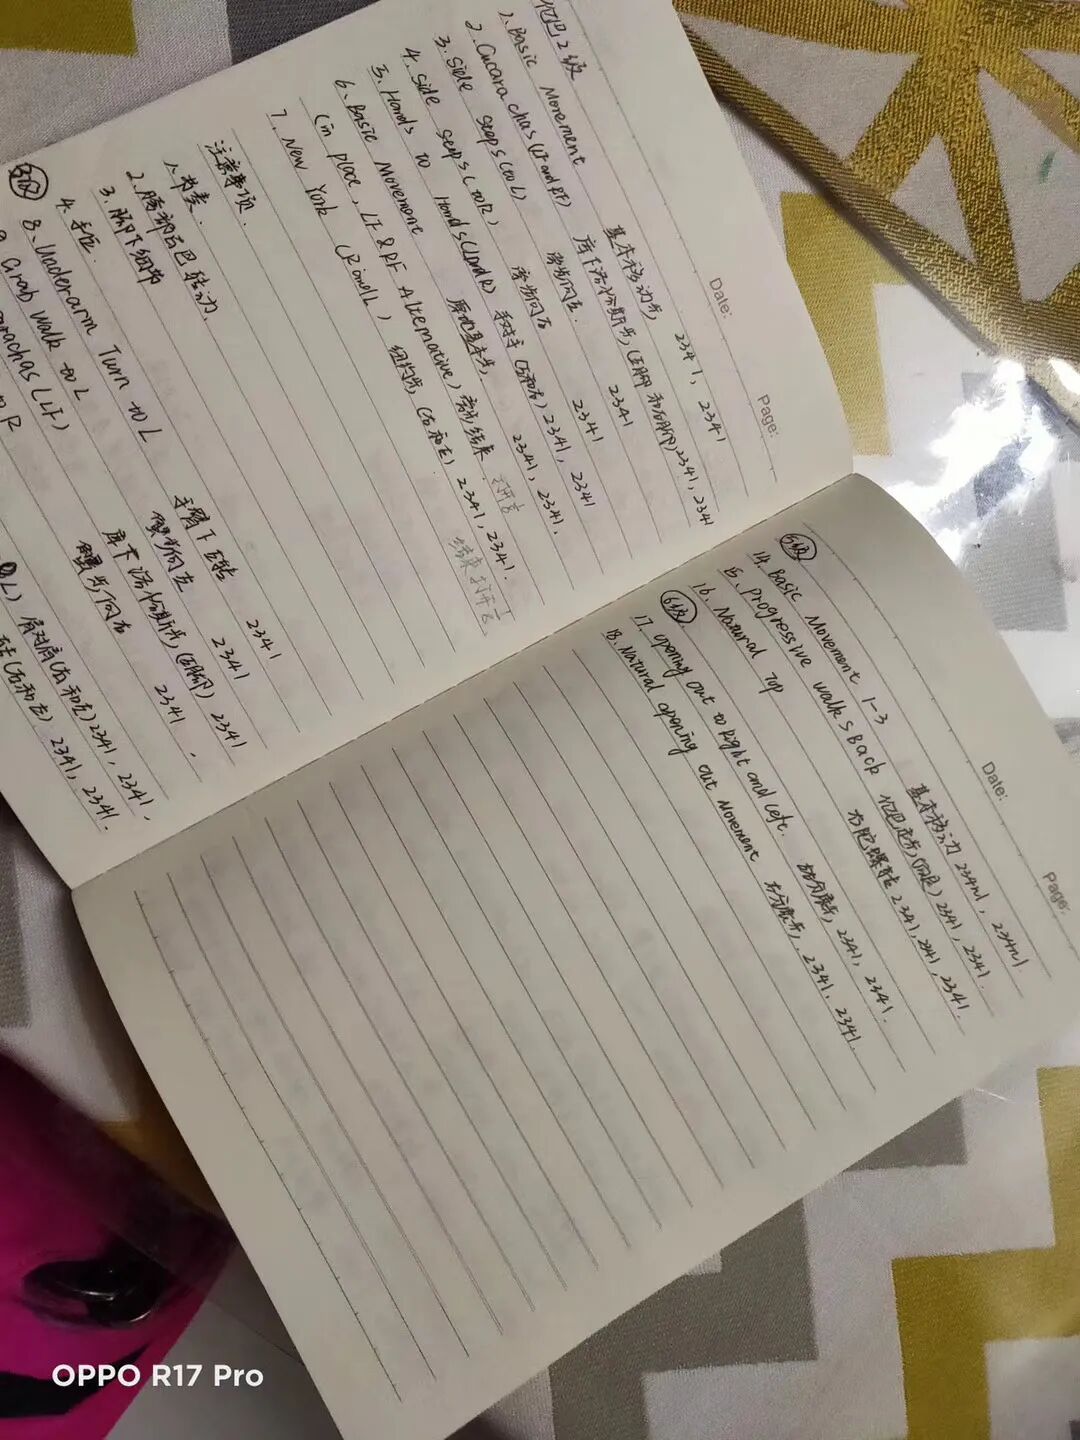 Date:
Page:
伦巴2级
1、Basic Movement 基本移动步, 2341, 2341
2、Cucarachas(LF and RF) 库卡洛恰斯步,(左脚和右脚)2341, 2341
3、Side seeps(to L) 旁步向左. 2341
4、Side seeps(to R) 旁步向右 2341
5、Hands to Hands(L and R) 手对手(左和右)2341, 2341
6、Basic Movement 原地基本步, 2341, 2341.
(in place, LF & RF Alternative)
7、New York (R and L) 纽约步,(右和左) 2341, 2341.
结束打开
注意事项
1、节奏.
2、胯部
3、脚下细节
4、手位.
8、Underarm Turn to L 手臂下左转 2341
Crab walk to L 蟹步向左 2341
(LF) (左脚) 2341
R 蟹步向右 2341.
肩对肩(左和右)2341, 2341.
(右和左) 2341, 2341.
Date:
Page:
5级
14、Basic Movement 1-3 基本移动 234n1, 234n1.
15、Progressive walks Back 伦巴走步,(向后)2341, 2341.
16、Natural Top 右陀螺转 2341, 2341, 2341.
6级
17、Opening out to Right and Left. 2341, 2341.
18、Natural opening out Movement 右分展步, 2341, 2341.
OPPO R17 Pro